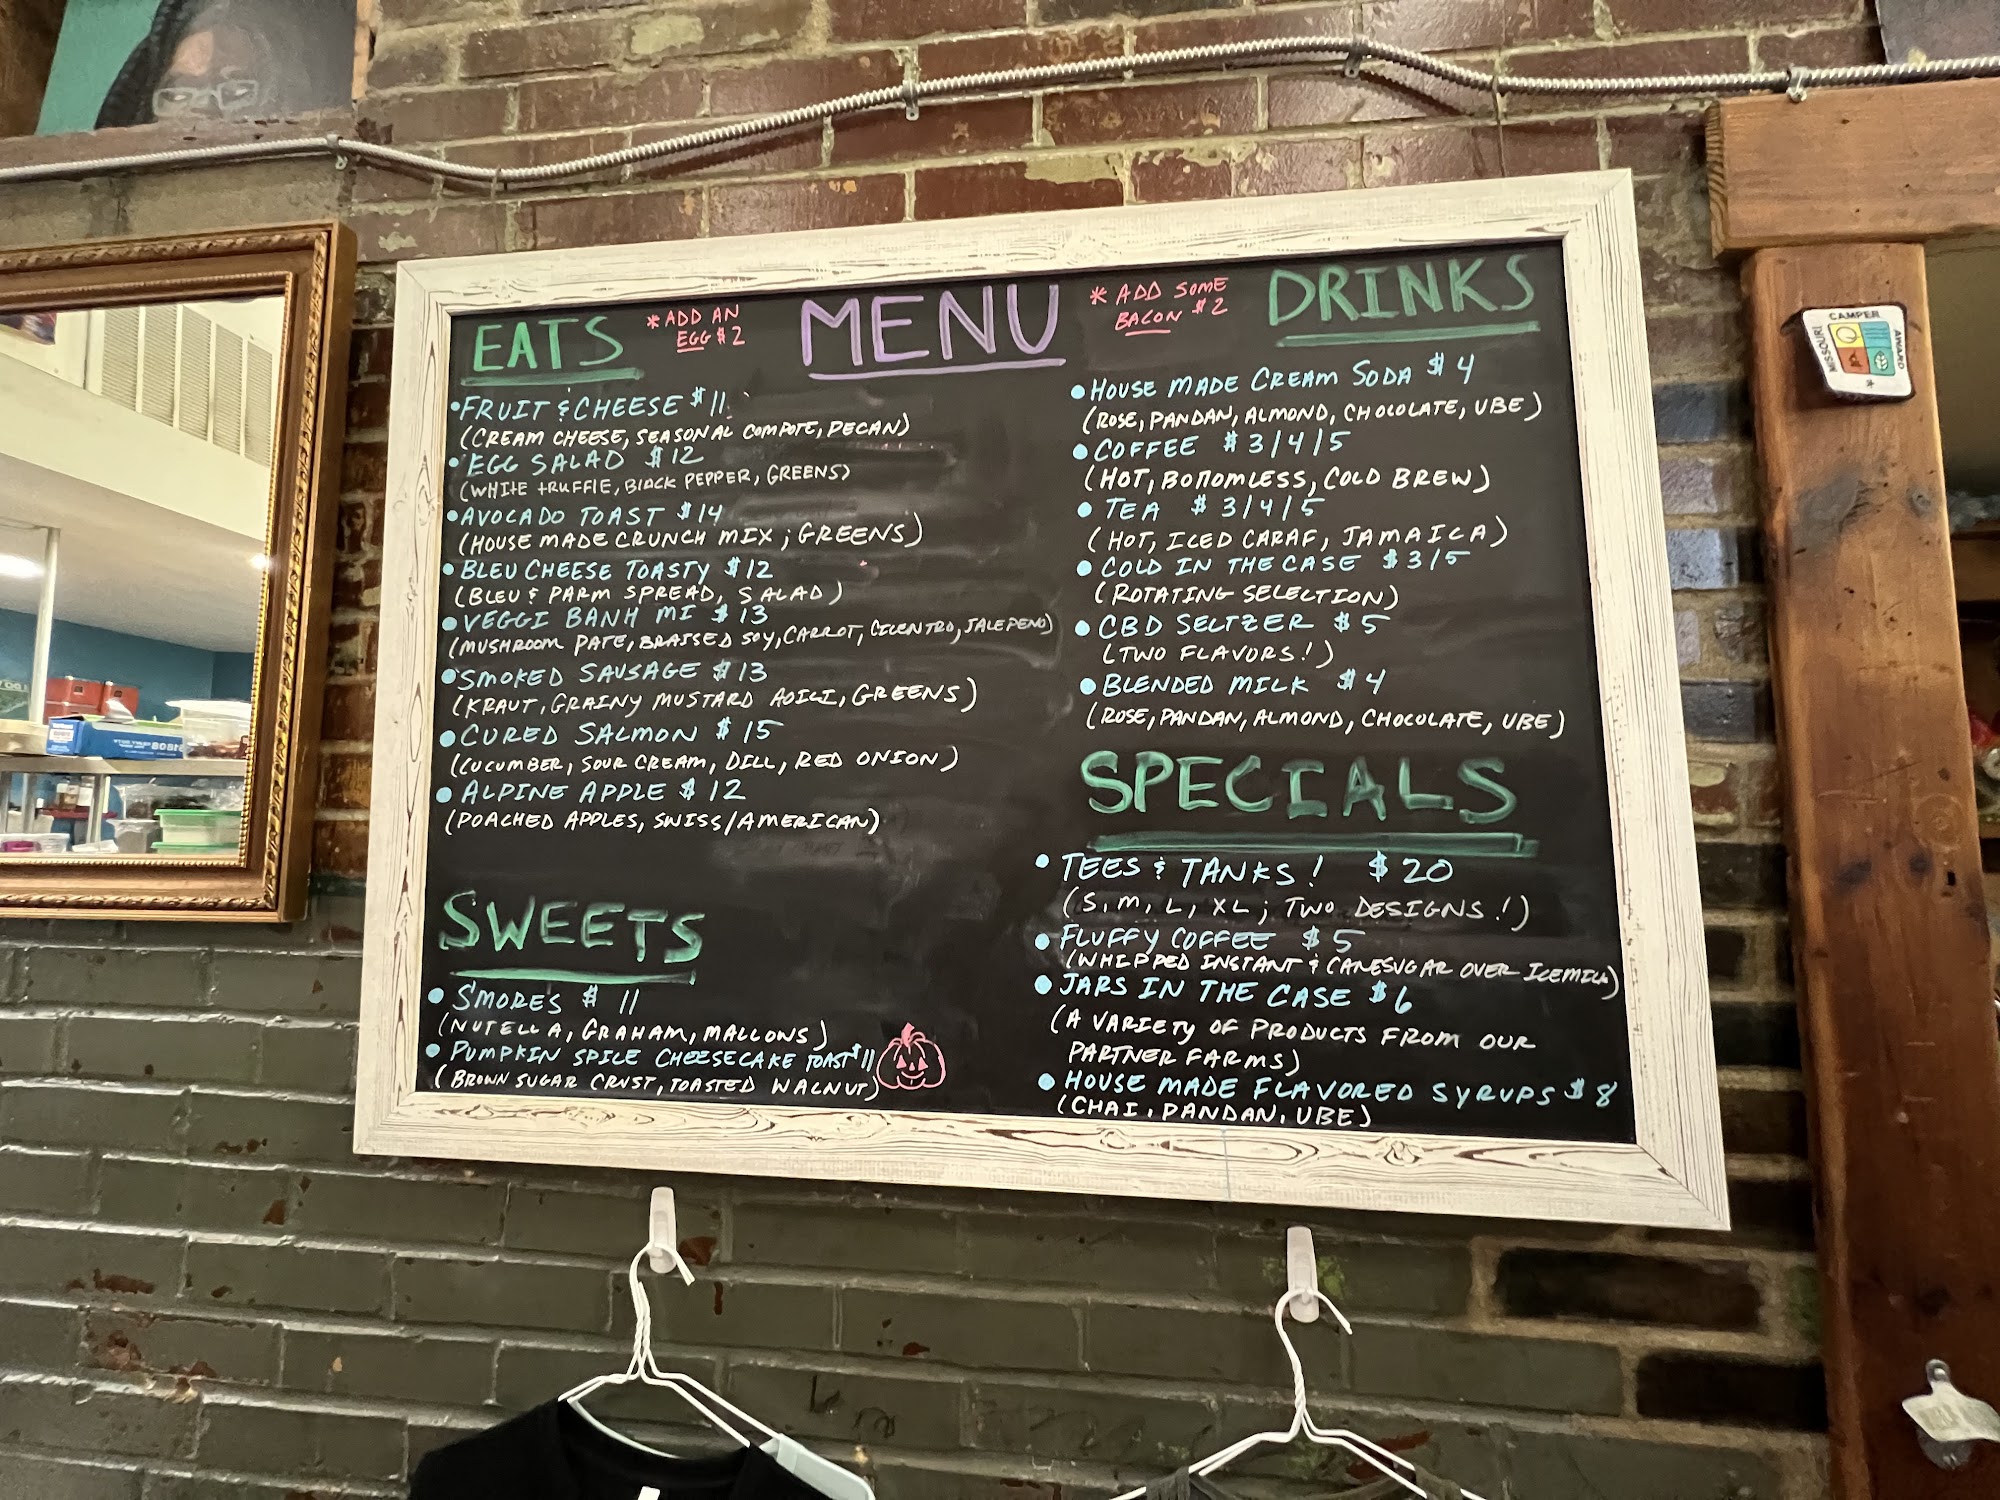 MENU
EATS
* ADD AN
EGG $2
• FRUIT & CHEESE $11
(CREAM CHEESE, SEASONAL COMPOTE, PECAN)
• EGG SALAD $12
(WHITE TRUFFLE, BLACK PEPPER, GREENS)
• AVOCADO TOAST $14
(HOUSE MADE CRUNCH MIX; GREENS)
• BLEU CHEESE TOASTY $12
(BLEU & PARM SPREAD, SALAD)
• VEGGI BANH MI $13
(MUSHROOM PATE, BRAISED SOY, CARROT, CILENTRO, JALEPENO)
• SMOKED SAUSAGE $13
(KRAUT, GRAINY MUSTARD AOILI, GREENS)
• CURED SALMON $15
(CUCUMBER, SOUR CREAM, DILL, RED ONION)
• ALPINE APPLE $12
(POACHED APPLES, SWISS/AMERICAN)
SWEETS
• S'MORES $11
(NUTELLA, GRAHAM, MALLOWS)
• PUMPKIN SPICE CHEESECAKE TOAST $11
(BROWN SUGAR CRUST, TOASTED WALNUT)
* ADD SOME
BACON $2
DRINKS
• HOUSE MADE CREAM SODA $4
(ROSE, PANDAN, ALMOND, CHOCOLATE, UBE)
• COFFEE $3/4/5
(HOT, BOTTOMLESS, COLD BREW)
• TEA $3/4/5
(HOT, ICED CARAF, JAMAICA)
• COLD IN THE CASE $3/5
(ROTATING SELECTION)
• CBD SELTZER $5
(TWO FLAVORS!)
• BLENDED MILK $4
(ROSE, PANDAN, ALMOND, CHOCOLATE, UBE)
SPECIALS
• TEES & TANKS! $20
(S, M, L, XL; TWO DESIGNS!)
• FLUFFY COFFEE $5
(WHIPPED INSTANT & CANESUGAR OVER ICEMILK)
• JARS IN THE CASE $6
(A VARIETY OF PRODUCTS FROM OUR
PARTNER FARMS)
• HOUSE MADE FLAVORED SYRUPS $8
(CHAI, PANDAN, UBE)
CAMPER
MISSOURI
AWARD